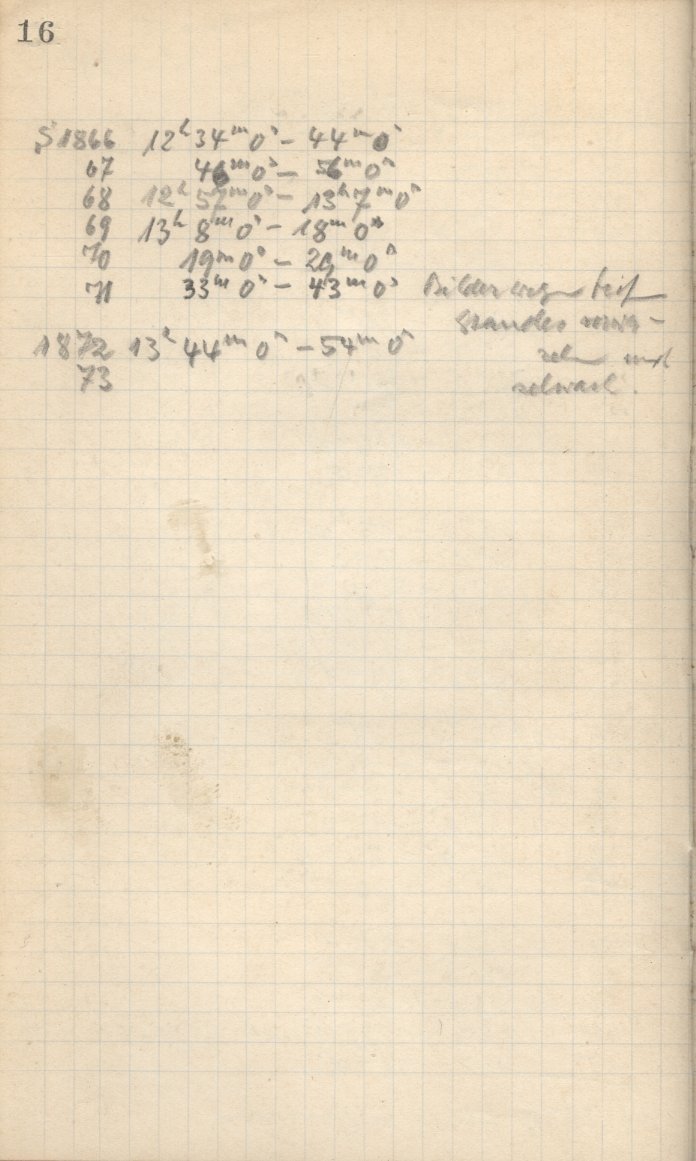 16
S 1866 12ʰ 34ᵐ 0ˢ – 44ᵐ 0ˢ
67 46ᵐ 0ˢ – 56ᵐ 0ˢ
68 12ʰ 57ᵐ 0ˢ – 13ʰ 7ᵐ 0ˢ
69 13ʰ 8ᵐ 0ˢ – 18ᵐ 0ˢ
70 19ᵐ 0ˢ – 29ᵐ 0ˢ
71 33ᵐ 0ˢ – 43ᵐ 0ˢ Bilder wegen tief
standes
1872 13ʰ 44ᵐ 0ˢ – 54ᵐ 0ˢ und
73 schwach.